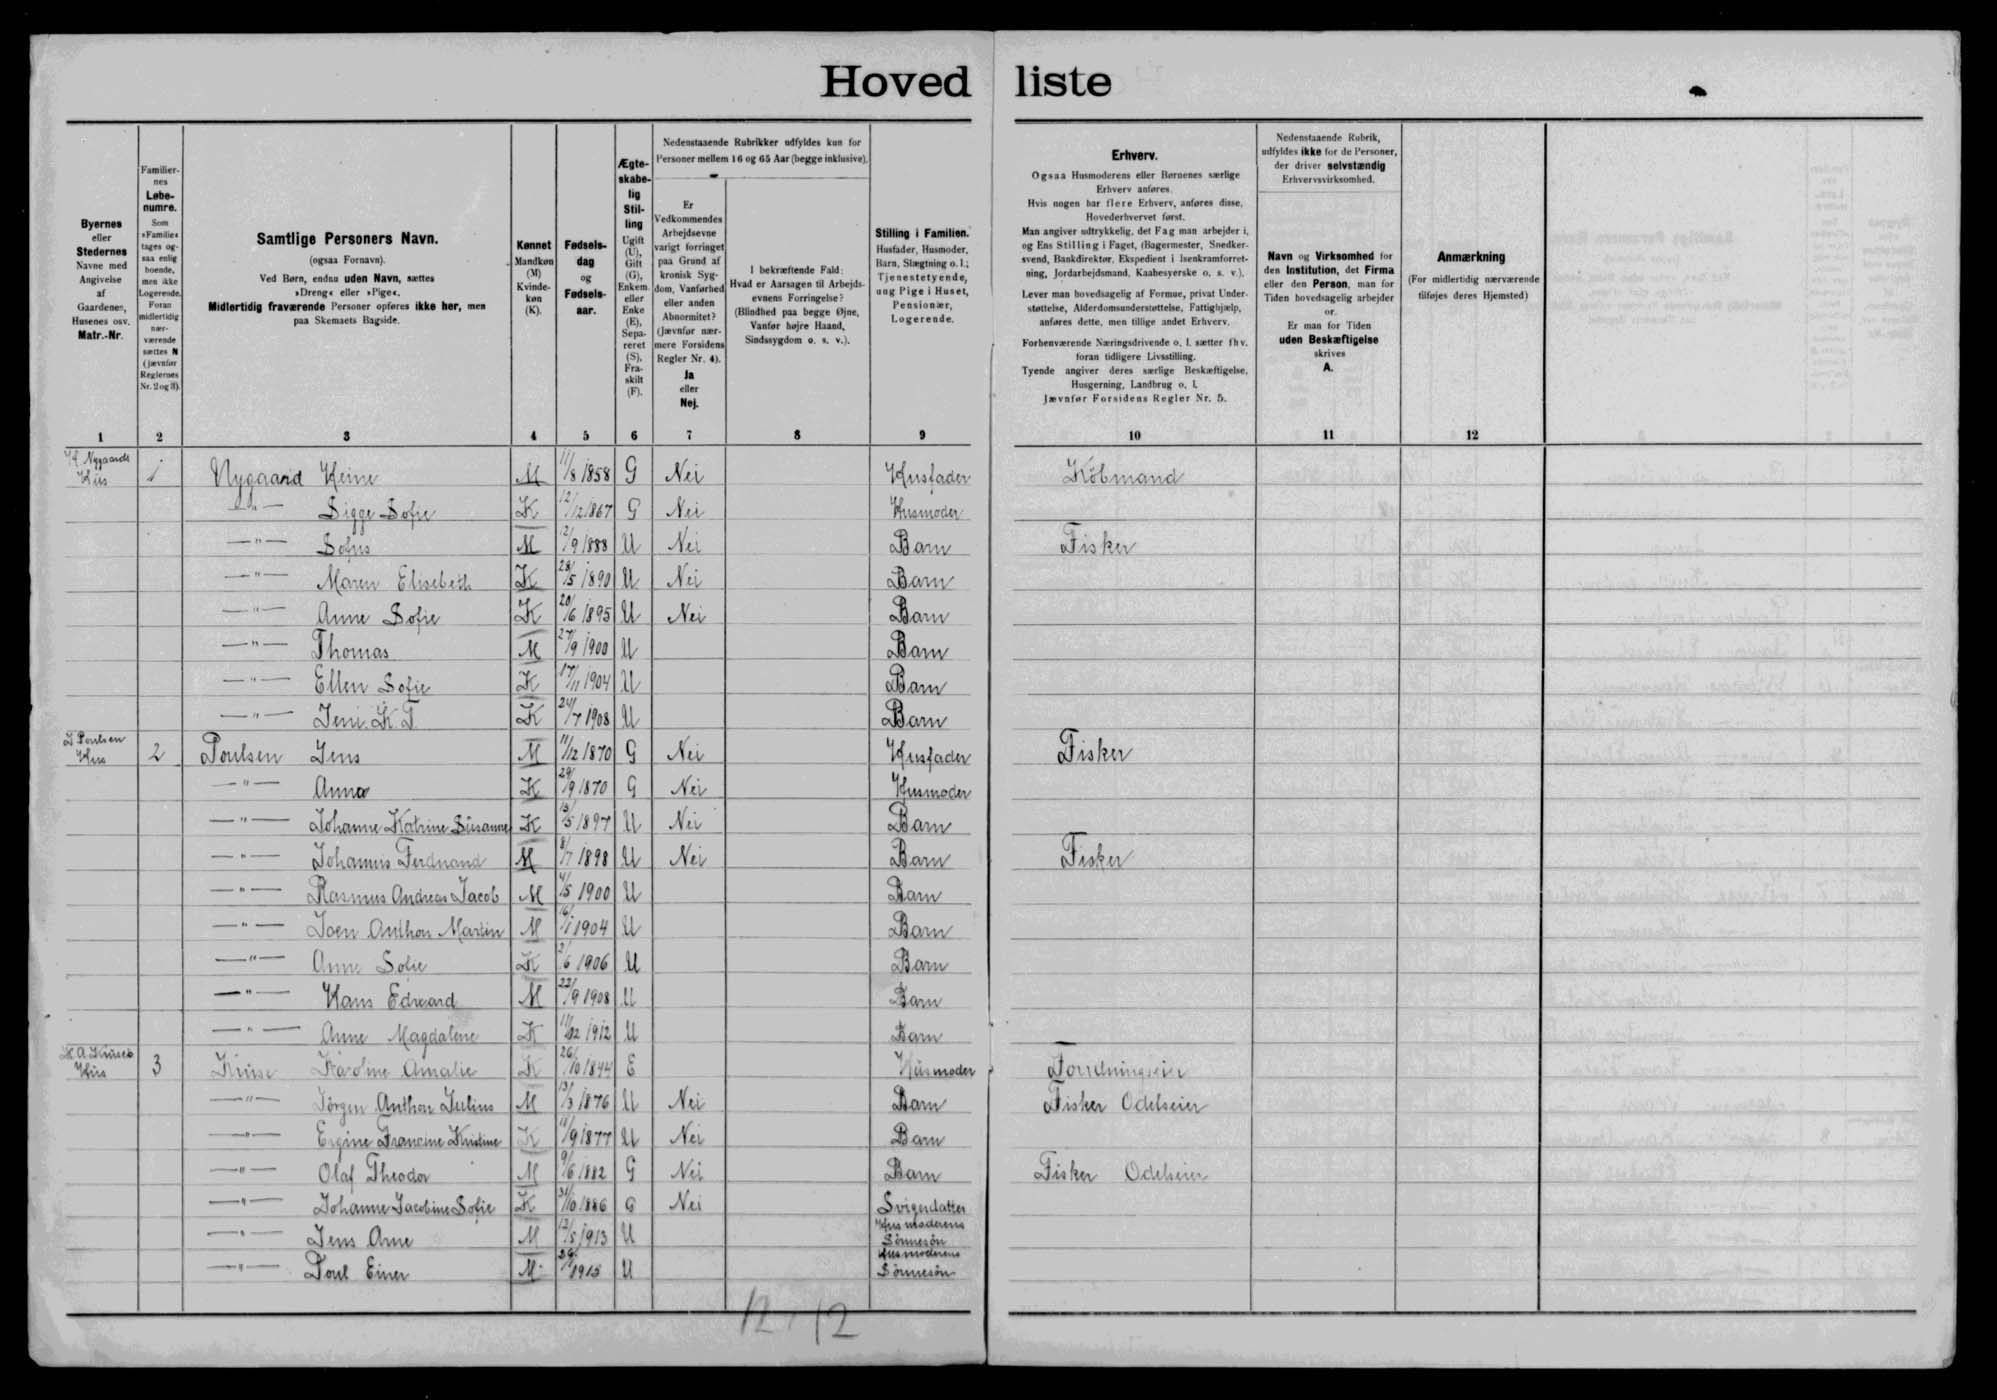 Hoved liste
Byernes
eller
Stedernes
Navne med
Angivelse
af
Gaardenes,
Husenes osv.
Matr.-Nr.
Familier-
nes
Løbe-
numre.
Som
»Familie«
tages og-
saa enlig
boende,
men ikke
Logerende.
Foran
midlertidig
nær-
værende
sættes N
(jævnfør
Reglernes
Nr. 2 og 3).
Samtlige Personers Navn.
(ogsaa Fornavn).
Ved Børn, endnu uden Navn, sættes
»Dreng« eller »Pige«.
Midlertidig fraværende Personer opføres ikke her, men
paa Skemaets Bagside.
Kønnet
Mandkøn
(M)
Kvinde-
køn
(K).
Fødsels-
dag
og
Fødsels-
aar.
Ægte-
skabe-
lig
Stil-
ling
Ugift
(U),
Gift
(G),
Enkem.
eller
Enke
(E),
Sepa-
reret
(S),
Fra-
skilt
(F).
Nedenstaaende Rubrikker udfyldes kun for
Personer mellem 16 og 65 Aar (begge inklusive).
Er
Vedkommendes
Arbejdsevne
varigt forringet
paa Grund af
kronisk Syg-
dom, Vanførhed
eller anden
Abnormitet?
(Jævnfør nær-
mere Forsidens
Regler Nr. 4).
Ja
eller
Nej.
I bekræftende Fald:
Hvad er Aarsagen til Arbejds-
evnens Forringelse?
(Blindhed paa begge Øjne,
Vanfør højre Haand,
Sindssygdom o. s. v.).
Stilling i Familien.
Husfader, Husmoder,
Barn, Slægtning o. l.;
Tjenestetyende,
ung Pige i Huset,
Pensionær,
Logerende.
Erhverv.
Ogsaa Husmoderens eller Børnenes særlige
Erhverv anføres.
Hvis nogen har flere Erhverv, anføres disse,
Hovederhvervet først.
Man angiver udtrykkelig, det Fag man arbejder i,
og Ens Stilling i Faget, (Bagermester, Snedker-
svend, Bankdirektør, Ekspedient i Isenkramforret-
ning, Jordarbejdsmand, Kaabesyerske o. s. v.).
Lever man hovedsagelig af Formue, privat Under-
støttelse, Alderdomsunderstøttelse, Fattighjælp,
anføres dette, men tillige andet Erhverv.
Forhenværende Næringsdrivende o. l. sætter fhv.
foran tidligere Livsstilling.
Tyende angiver deres særlige Beskæftigelse,
Husgerning, Landbrug o. l.
Jævnfør Forsidens Regler Nr. 5.
Nedenstaaende Rubrik,
udfyldes ikke for de Personer,
der driver selvstændig
Erhvervsvirksomhed.
Navn og Virksomhed for
den Institution, det Firma
eller den Person, man for
Tiden hovedsagelig arbejder
for.
Er man for Tiden
uden Beskæftigelse
skrives
A.
Anmærkning
(For midlertidig nærværende
tilføjes deres Hjemsted)
1 2 3 4 5 6 7 8 9 10 11 12
H. Nygaards
Hus 1 Nygaard Heine M 11/8 1858 G Nei Husfader Købmand
—"— Sigge Sofie K 12/12 1867 G Nei Husmoder
—"— Sofus M 12/9 1888 U Nei Barn Fisker
—"— Maren Elisebeth K 28/5 1890 U Nei Barn
—"— Anne Sofie K 20/6 1895 U Nei Barn
—"— Thomas M 27/9 1900 U Barn
—"— Ellen Sofie K 17/11 1904 U Barn
—"— Jeni K. T. K 24/7 1908 U Barn
J Poulsen
Hus 2 Poulsen Jens M 11/12 1870 G Nei Husfader Fisker
—"— Anna K 29/9 1870 G Nei Husmoder
—"— Johanne Katrine Susanne K 15/5 1897 U Nei Barn
—"— Johannis Ferdnand M 8/7 1898 U Nei Barn Fisker
—"— Rasmus Andreas Jacob M 4/5 1900 U Barn
—"— Joen Anthon Martin M 16/1 1904 U Barn
—"— Anne Sofie K 2/6 1906 U Barn
—"— Hans Edvard M 22/9 1908 U Barn
—"— Anne Magdalene K 11/12 1912 U Barn
K A Kruses
Hus 3 Kruse Karoline Amalie K 26/10 1844 E Husmoder
—"— Jörgen Anthon Julius M 13/3 1876 U Nei Barn Fisker Odelseier
—"— Ergine Francine Kristine K 11/9 1877 U Nei Barn
—"— Olaf Theodor M 9/6 1882 G Nei Barn Fisker Odelseier
—"— Johanne Jacobine Sofie K 31/10 1886 G Nei Svigerdatter
—"— Jens Arne M 12/5 1913 U Husmoderens
Sönnesön
—"— Poul Einer M 1915 U Husmoderens
Sönnesön
12 12